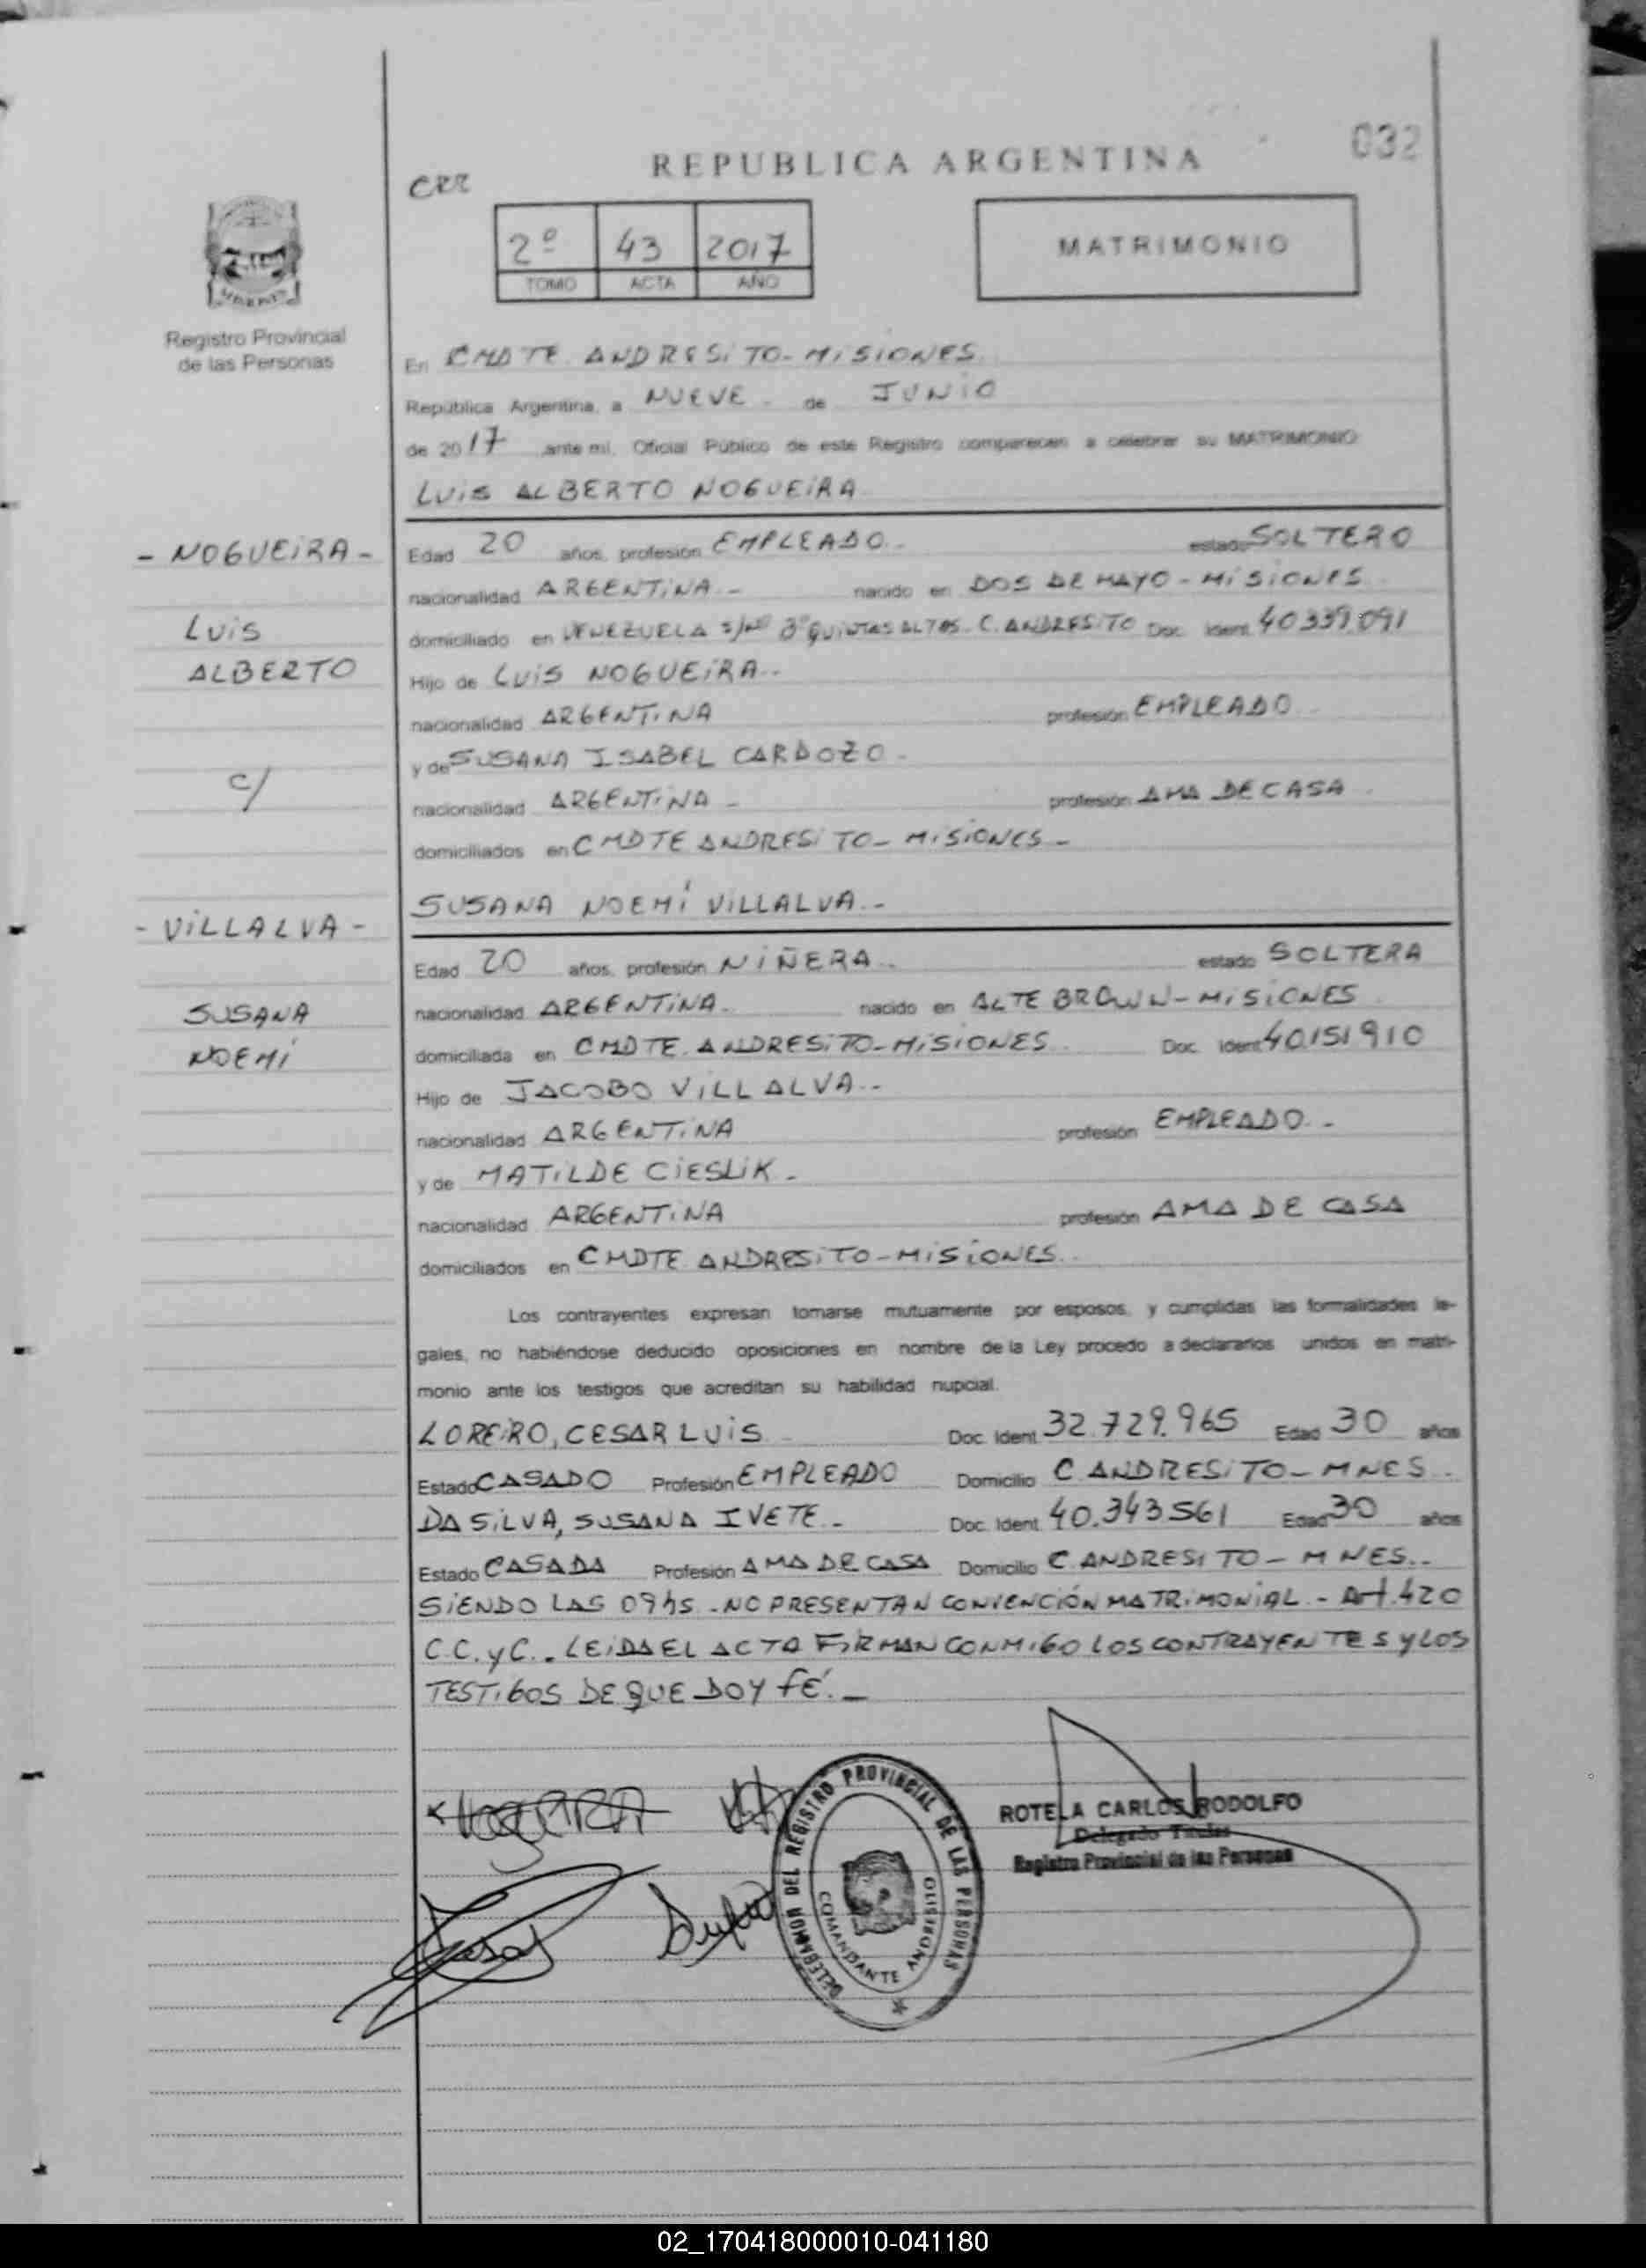 032
REPUBLICA ARGENTINA
CRR
2º 43 2017
TOMO ACTA AÑO
MATRIMONIO
Registro Provincial
de las Personas
En CMDTE. ANDRESITO - MISIONES.
República Argentina, a NUEVE - de JUNIO
de 2017 ante mi, Oficial Público de este Registro comparecen a celebrar su MATRIMONIO
LUIS ALBERTO NOGUEIRA
- NOGUEIRA -
LUIS
ALBERTO
Edad 20 años, profesión EMPLEADO.- estado SOLTERO
nacionalidad ARGENTINA.- nacido en DOS DE MAYO - MISIONES
domiciliado en VENEZUELA S/Nº Bº QUINTAS ALTAS - C. ANDRESITO Doc. Ident. 40339.091
Hijo de LUIS NOGUEIRA..
nacionalidad ARGENTINA profesión EMPLEADO
y de SUSANA ISABEL CARDOZO -
nacionalidad ARGENTINA - profesión AMA DE CASA
domiciliados en CMDTE ANDRESITO - MISIONES -
c/
SUSANA NOEMÍ VILLALVA.-
- VILLALVA -
SUSANA
NOEMÍ
Edad 20 años, profesión NIÑERA.. estado SOLTERA
nacionalidad ARGENTINA.. nacido en ALTE BROWN - MISIONES
domiciliada en CMDTE. ANDRESITO - MISIONES Doc. Ident 40.151.910
Hijo de JACOBO VILLALVA..
nacionalidad ARGENTINA profesión EMPLEADO..
y de MATILDE CIESLIK.-
nacionalidad ARGENTINA profesión AMA DE CASA
domiciliados en CMDTE ANDRESITO - MISIONES..
Los contrayentes expresan tomarse mutuamente por esposos, y cumplidas las formalidades le-
gales, no habiéndose deducido oposiciones en nombre de la Ley procedo a declararlos unidos en matri-
monio ante los testigos que acreditan su habilidad nupcial.
LOREIRO, CESAR LUIS - Doc. Ident. 32.729.965 Edad 30 años
Estado CASADO Profesión EMPLEADO Domicilio C. ANDRESITO - MNES.
DA SILVA, SUSANA IVETE.- Doc. Ident. 40.343.561 Edad 30 años
Estado CASADA Profesión AMA DE CASA Domicilio C. ANDRESITO - MNES..
SIENDO LAS 09hs. - NO PRESENTAN CONVENCIÓN MATRIMONIAL. - Art. 420
C.C. y C.. LEIDA EL ACTA FIRMAN CONMIGO LOS CONTRAYENTES y LOS
TESTIGOS DE QUE DOY FÉ. -
DELEGACION DEL REGISTRO PROVINCIAL DE LAS PERSONAS
COMANDANTE ANDRESITO
ROTELA CARLOS RODOLFO
Delegado Titular
Registro Provincial de las Personas
02_170418000010-041180